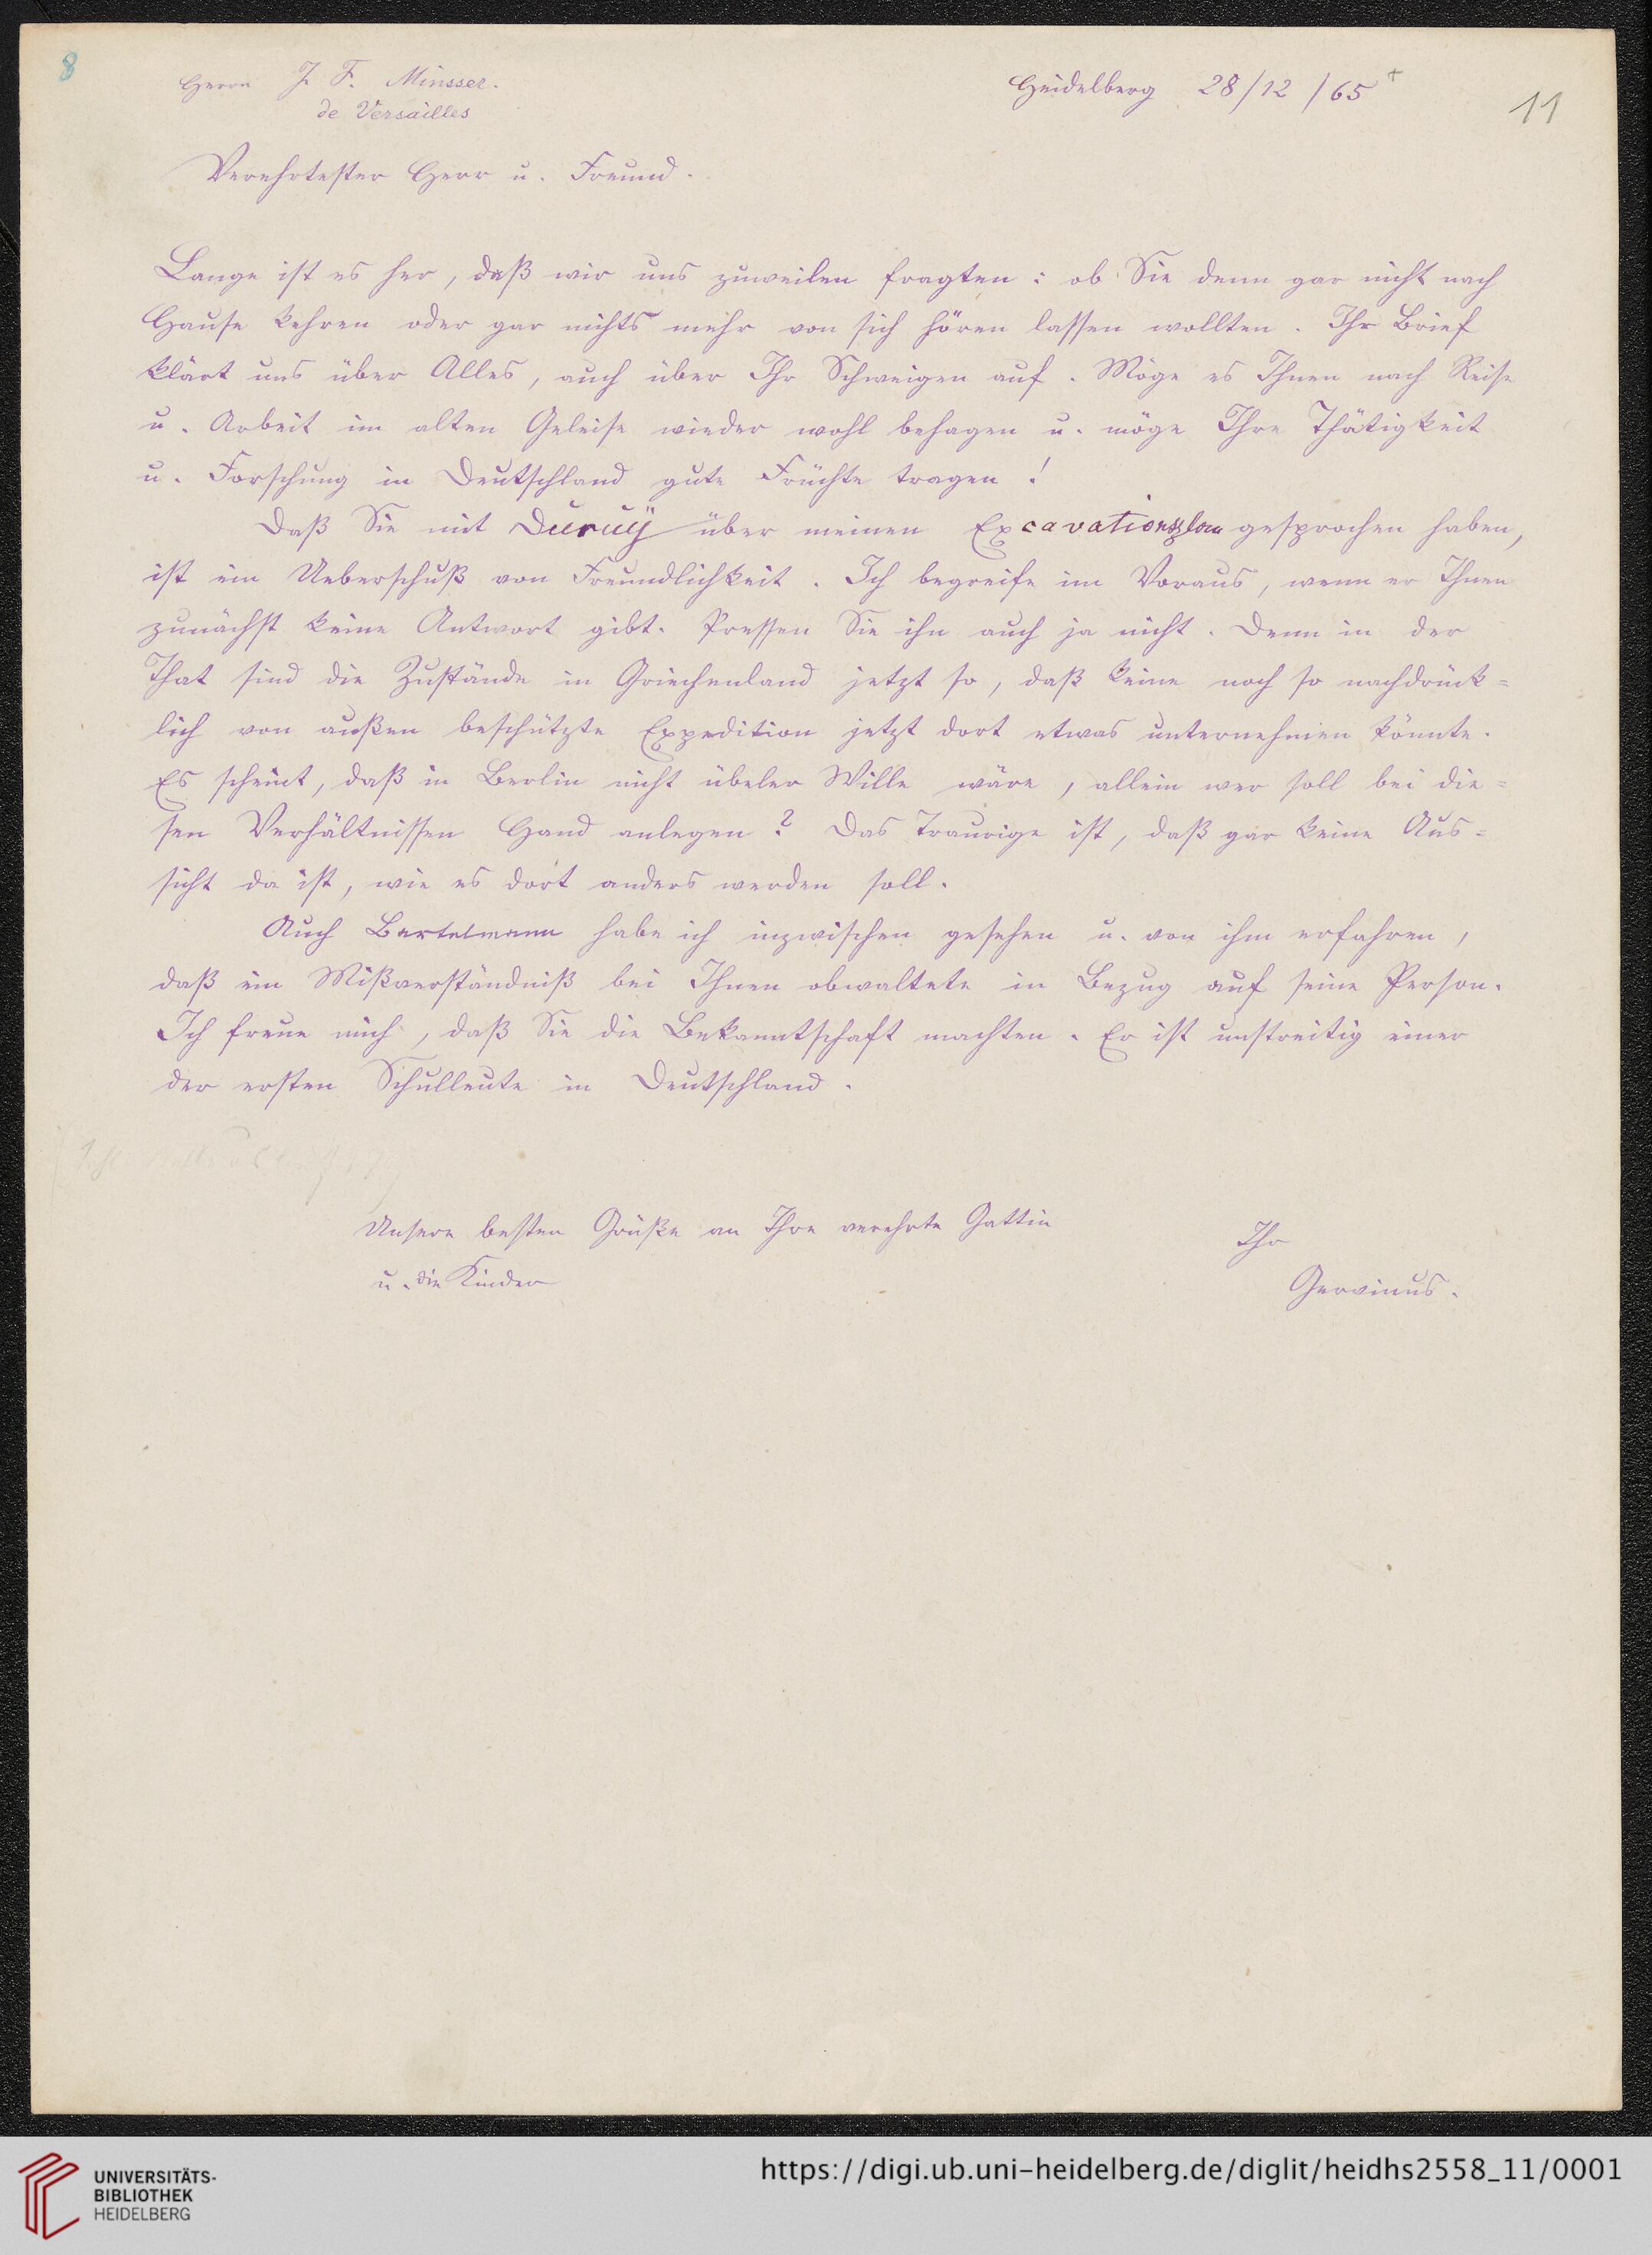 8
Herrn J. F. Minssen.
de Versailles
Heidelberg 28/12/65
11
Verehrtester Herr u. Freund.
Lange ist es her, daß wir uns zuweilen fragten: ob Sie denn gar nicht nach
Hause kehren oder gar nichts mehr von sich hören lassen wollten. Ihr Brief
klärt uns über Alles, auch über Ihr Schweigen auf. Möge es Ihnen nach Reise
u. Arbeit im alten Geleise wieder wohl behagen u. möge Ihre Thätigkeit
u. Forschung in Deutschland gute Früchte tragen!
Daß Sie mit Duruÿ über meinen Excavationsplan gesprochen haben,
ist ein Ueberschuß von Freundlichkeit. Ich begreife im Voraus, wenn er Ihnen
zunächst keine Antwort gibt. Pressen Sie ihn auch ja nicht. Denn in der
That sind die Zustände in Griechenland jetzt so, daß keine noch so nachdrück=
lich von außen beschützte Expedition jetzt dort etwas unternehmen könnte.
Es scheint, daß in Berlin nicht übeler Wille wäre, allein wer soll bei die=
sen Verhältnissen Hand anlegen? Das Traurige ist, daß gar keine Aus=
sicht da ist, wie es dort anders werden soll.
Auch Bertelmann habe ich inzwischen gesehen u. von ihm erfahren,
daß ein Mißverständniß bei Ihnen obwaltete in Bezug auf seine Person.
Ich freue mich, daß Sie die Bekanntschaft machten. Er ist unstreitig einer
der ersten Schulleute in Deutschland.
Unsere besten Grüße an Ihre verehrte Gattin
u. die Kinder
Ihr
Gervinus.
UNIVERSITÄTS-
BIBLIOTHEK
HEIDELBERG
https://digi.ub.uni-heidelberg.de/diglit/heidhs2558_11/0001